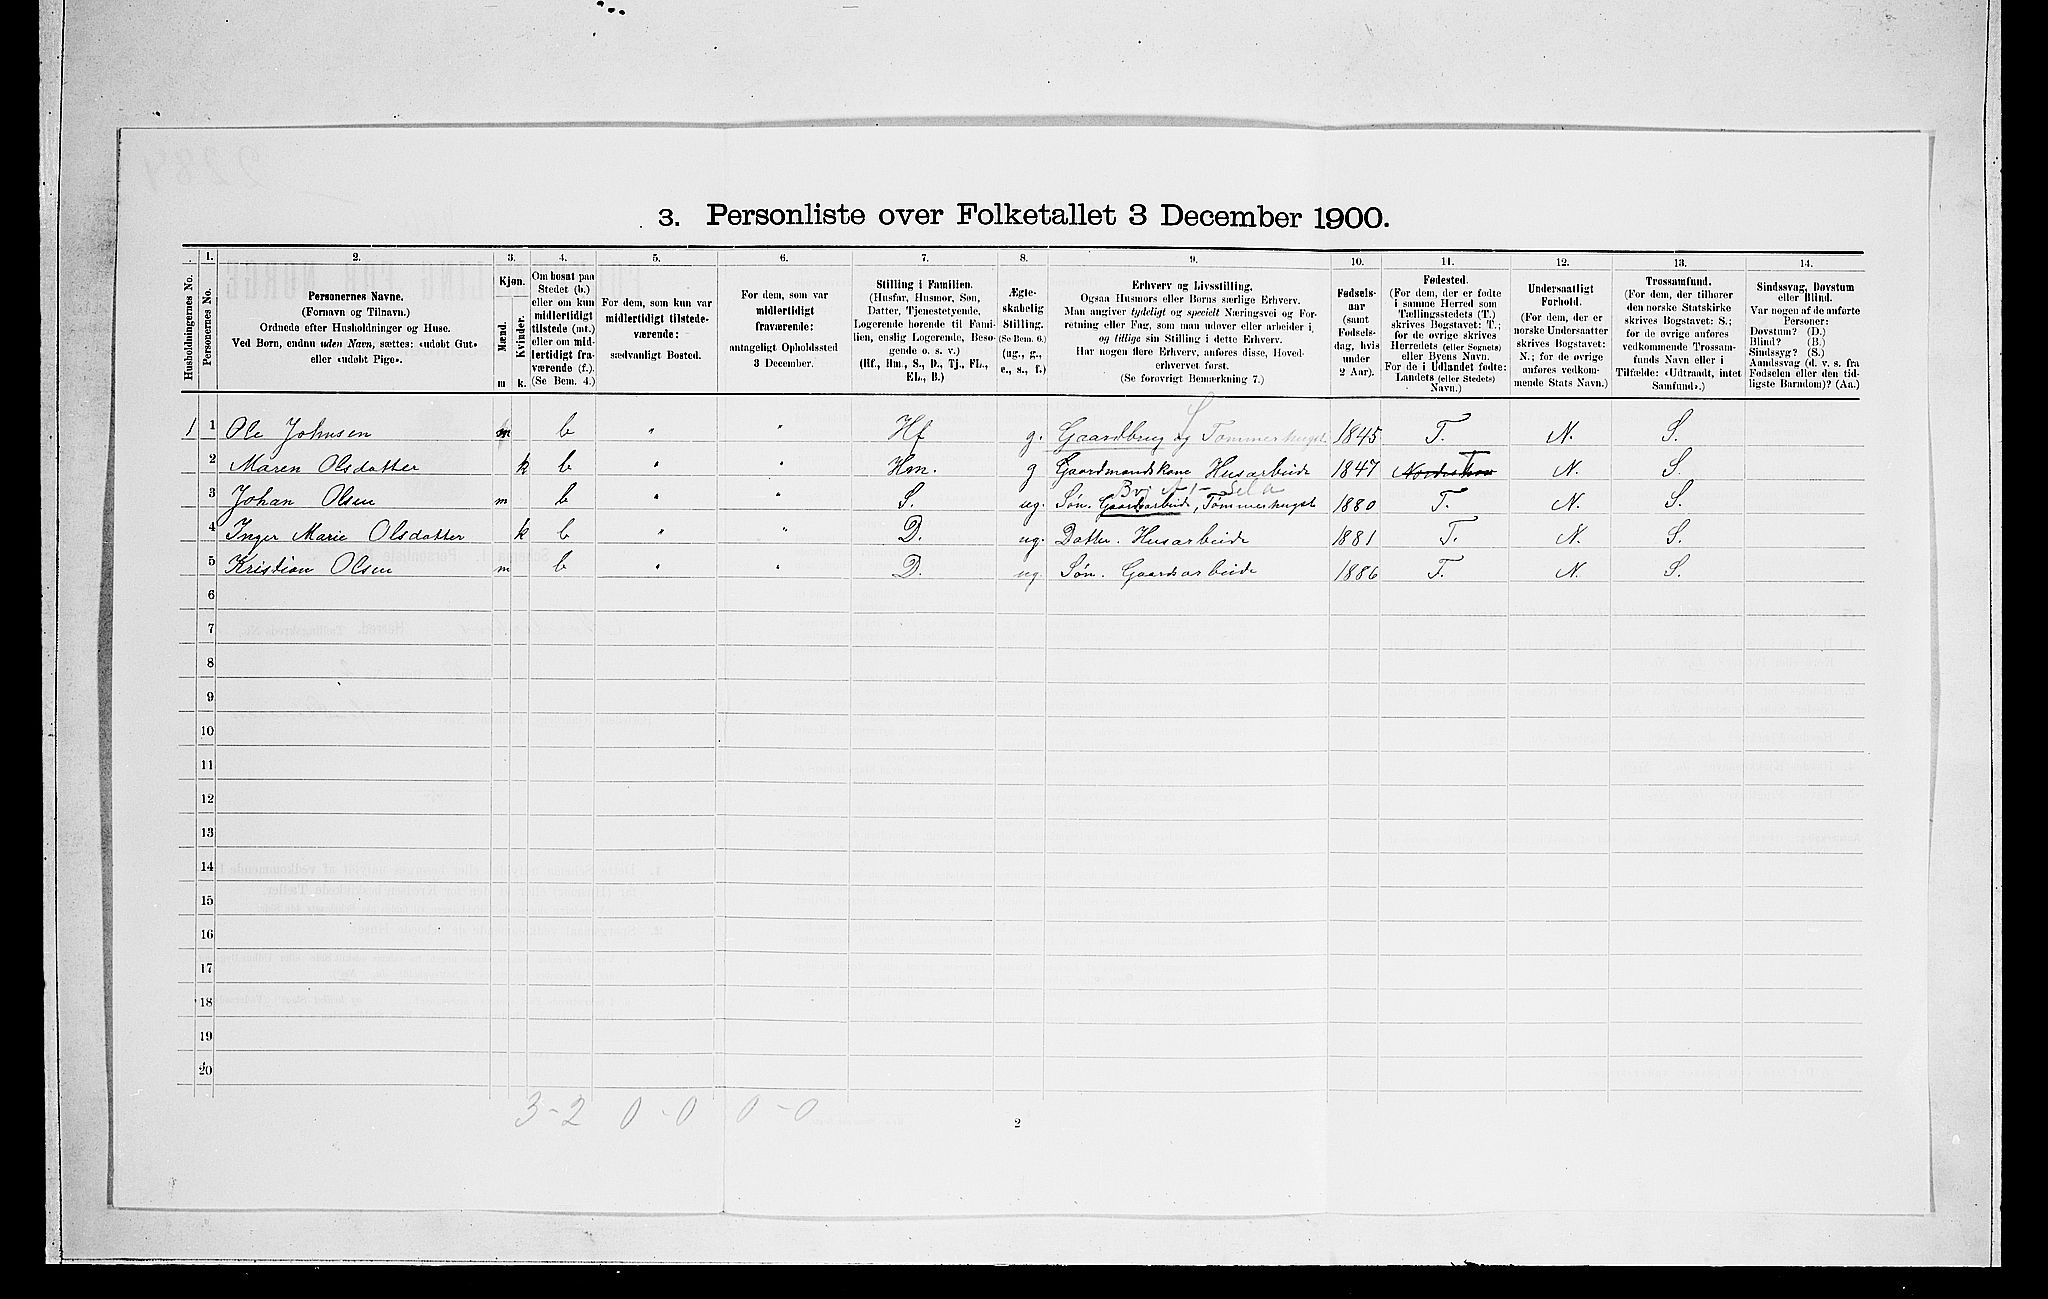 3. Personliste over Folketallet 3 December 1900.
1. 2. 3. 4. 5. 6. 7. 8. 9. 10. 11. 12. 13. 14.
Husholdningernes No.
Personernes No.
Personernes Navne.
(Fornavn og Tilnavn.)
Ordnede efter Husholdninger og Huse.
Ved Børn, endnu uden Navn, sættes: «udøbt Gut»
eller «udøbt Pige».
Kjøn.
Mænd.
Kvinder.
m k.
Om bosat paa
Stedet (b.)
eller om kun
midlertidigt
tilstede (mt.)
eller om mid-
lertidigt fra-
værende (f.).
(Se Bem. 4.)
For dem, som kun var
midlertidigt tilstede-
værende:
sædvanligt Bosted.
For dem, som var
midlertidigt
fraværende:
antageligt Opholdssted
3 December.
Stilling i Familien.
(Husfar, Husmor, Søn,
Datter, Tjenestetyende,
Logerende hørende til Fami-
lien, enslig Logerende, Besø-
gende o. s. v.)
(Hf., Hm., S., D., Tj., FL.,
EL., B.)
Ægte-
skabelig
Stilling.
(Se Bem. 6.)
(ug., g.,
e., s., f.)
Erhverv og Livsstilling.
Ogsaa Husmors eller Børns særlige Erhverv.
Man angiver tydeligt og specielt Næringsvei og For-
retning eller Fag, som man udøver eller arbeider i,
og tillige sin Stilling i dette Erhverv.
Har nogen flere Erhverv, anføres disse, Hoved-
erhvervet først.
(Se forøvrigt Bemærkning 7.)
Fødsels-
aar
(samt
Fødsels-
dag, hvis
under
2 Aar).
Fødested.
(For dem, der er fødte
i samme Herred som
Tællingsstedets (T.)
skrives Bogstavet: T.;
for de øvrige skrives
Herredets (eller Sognets)
eller Byens Navn.
For de i Udlandet fødte:
Landets (eller Stedets)
Navn.)
Undersaatligt
Forhold.
(For dem, der er
norske Undersaatter
skrives Bogstavet:
N.; for de øvrige
anføres vedkom-
mende Stats Navn.)
Trossamfund.
(For dem, der tilhører
den norske Statskirke
skrives Bogstavet: S.;
for de øvrige anføres
vedkommende Trossam-
funds Navn eller i
Tilfælde: «Udtraadt, intet
Samfund».)
Sindssvag, Døvstum
eller Blind.
Var nogen af de anførte
Personer:
Døvstum? (D.)
Blind? (B.)
Sindssyg? (S.)
Aandssvag (d. v. s. fra
Fødselen eller den tid-
ligste Barndom)? (Aa.)
1 1 Ole Johnsen m b " " Hf g. Gaardbrug og Tømmerhugst 1845 T. N. S.
2 Maren Olsdatter k b " " Hm. g Gaardmandskone Husarbeide 1847 T N. S.
3 Johan Olsen m b " " S. ug. Søn. Gaardsarbeide, Tømmerhugst 1880 T. N. S.
4 Inger Marie Olsdatter k b " " D. ug. Datter. Husarbeide 1881 T. N. S.
5 Kristian Olsen m b " " D. ug. Søn. Gaardsarbeide 1886 T. N. S.
6
7
8
9
10
11
12
13
14
15
16
17
18
19
20
3-2 0-0 0-0
2